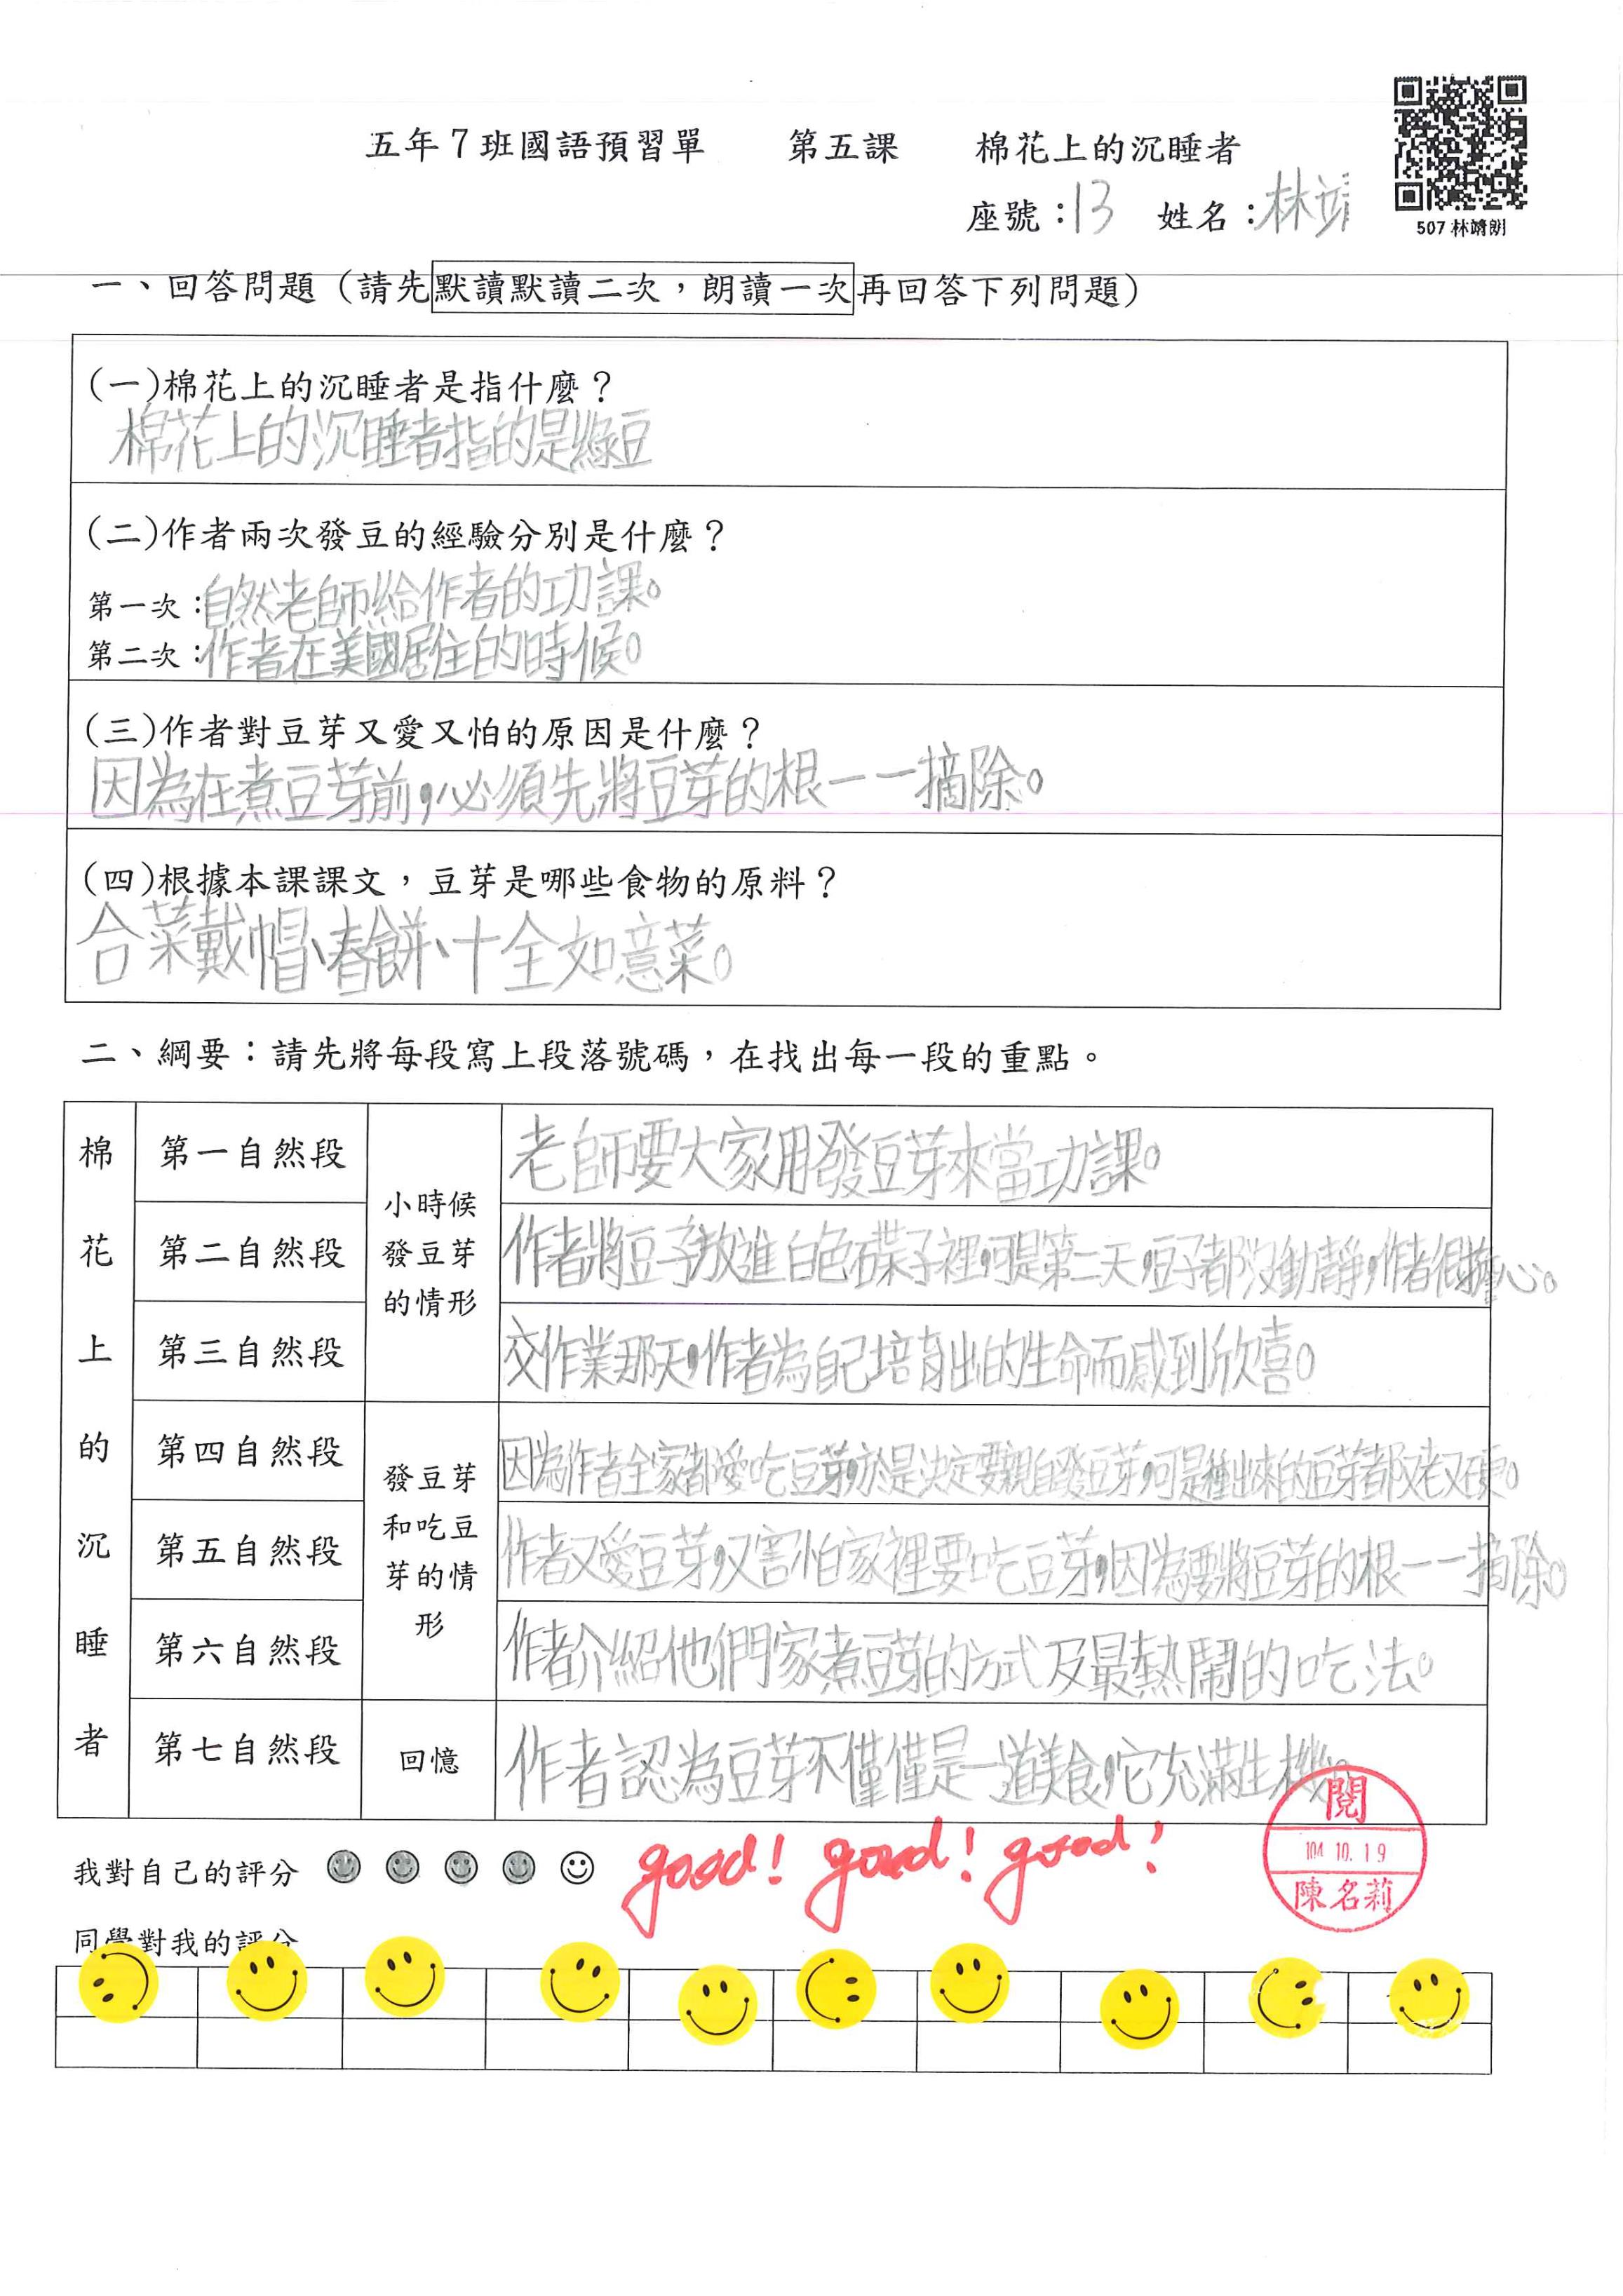 五年7班國語預習單　第五課　棉花上的沉睡者
座號：13　姓名：林靖
507 林靖朗
一、回答問題（請先默讀默讀二次，朗讀一次再回答下列問題）
(一)棉花上的沉睡者是指什麼？
棉花上的沉睡者指的是綠豆
(二)作者兩次發豆的經驗分別是什麼？
第一次：自然老師給作者的功課。
第二次：作者在美國居住的時候。
(三)作者對豆芽又愛又怕的原因是什麼？
因為在煮豆芽前，必須先將豆芽的根一一摘除。
(四)根據本課課文，豆芽是哪些食物的原料？
合菜戴帽、春餅、十全如意菜。
二、綱要：請先將每段寫上段落號碼，在找出每一段的重點。
棉花上的沉睡者
小時候發豆芽的情形
第一自然段 老師要大家用發豆芽來當功課。
第二自然段 作者將豆子放進白色碟子裡，可是第二天，豆子都沒動靜，作者很擔心。
第三自然段 交作業那天，作者為自己培育出的生命而感到欣喜。
發豆芽和吃豆芽的情形
第四自然段 因為作者全家都愛吃豆芽，於是決定要親自發豆芽，可是種出來的豆芽都又老又硬。
第五自然段 作者又愛豆芽，又害怕家裡要吃豆芽，因為要將豆芽的根一一摘除。
第六自然段 作者介紹他們家煮豆芽的方式及最熱鬧的吃法。
回憶
第七自然段 作者認為豆芽不僅僅是一道美食，它充滿生機。
我對自己的評分
good! good! good!
閱
104.10.19
陳名莉
同學對我的評分